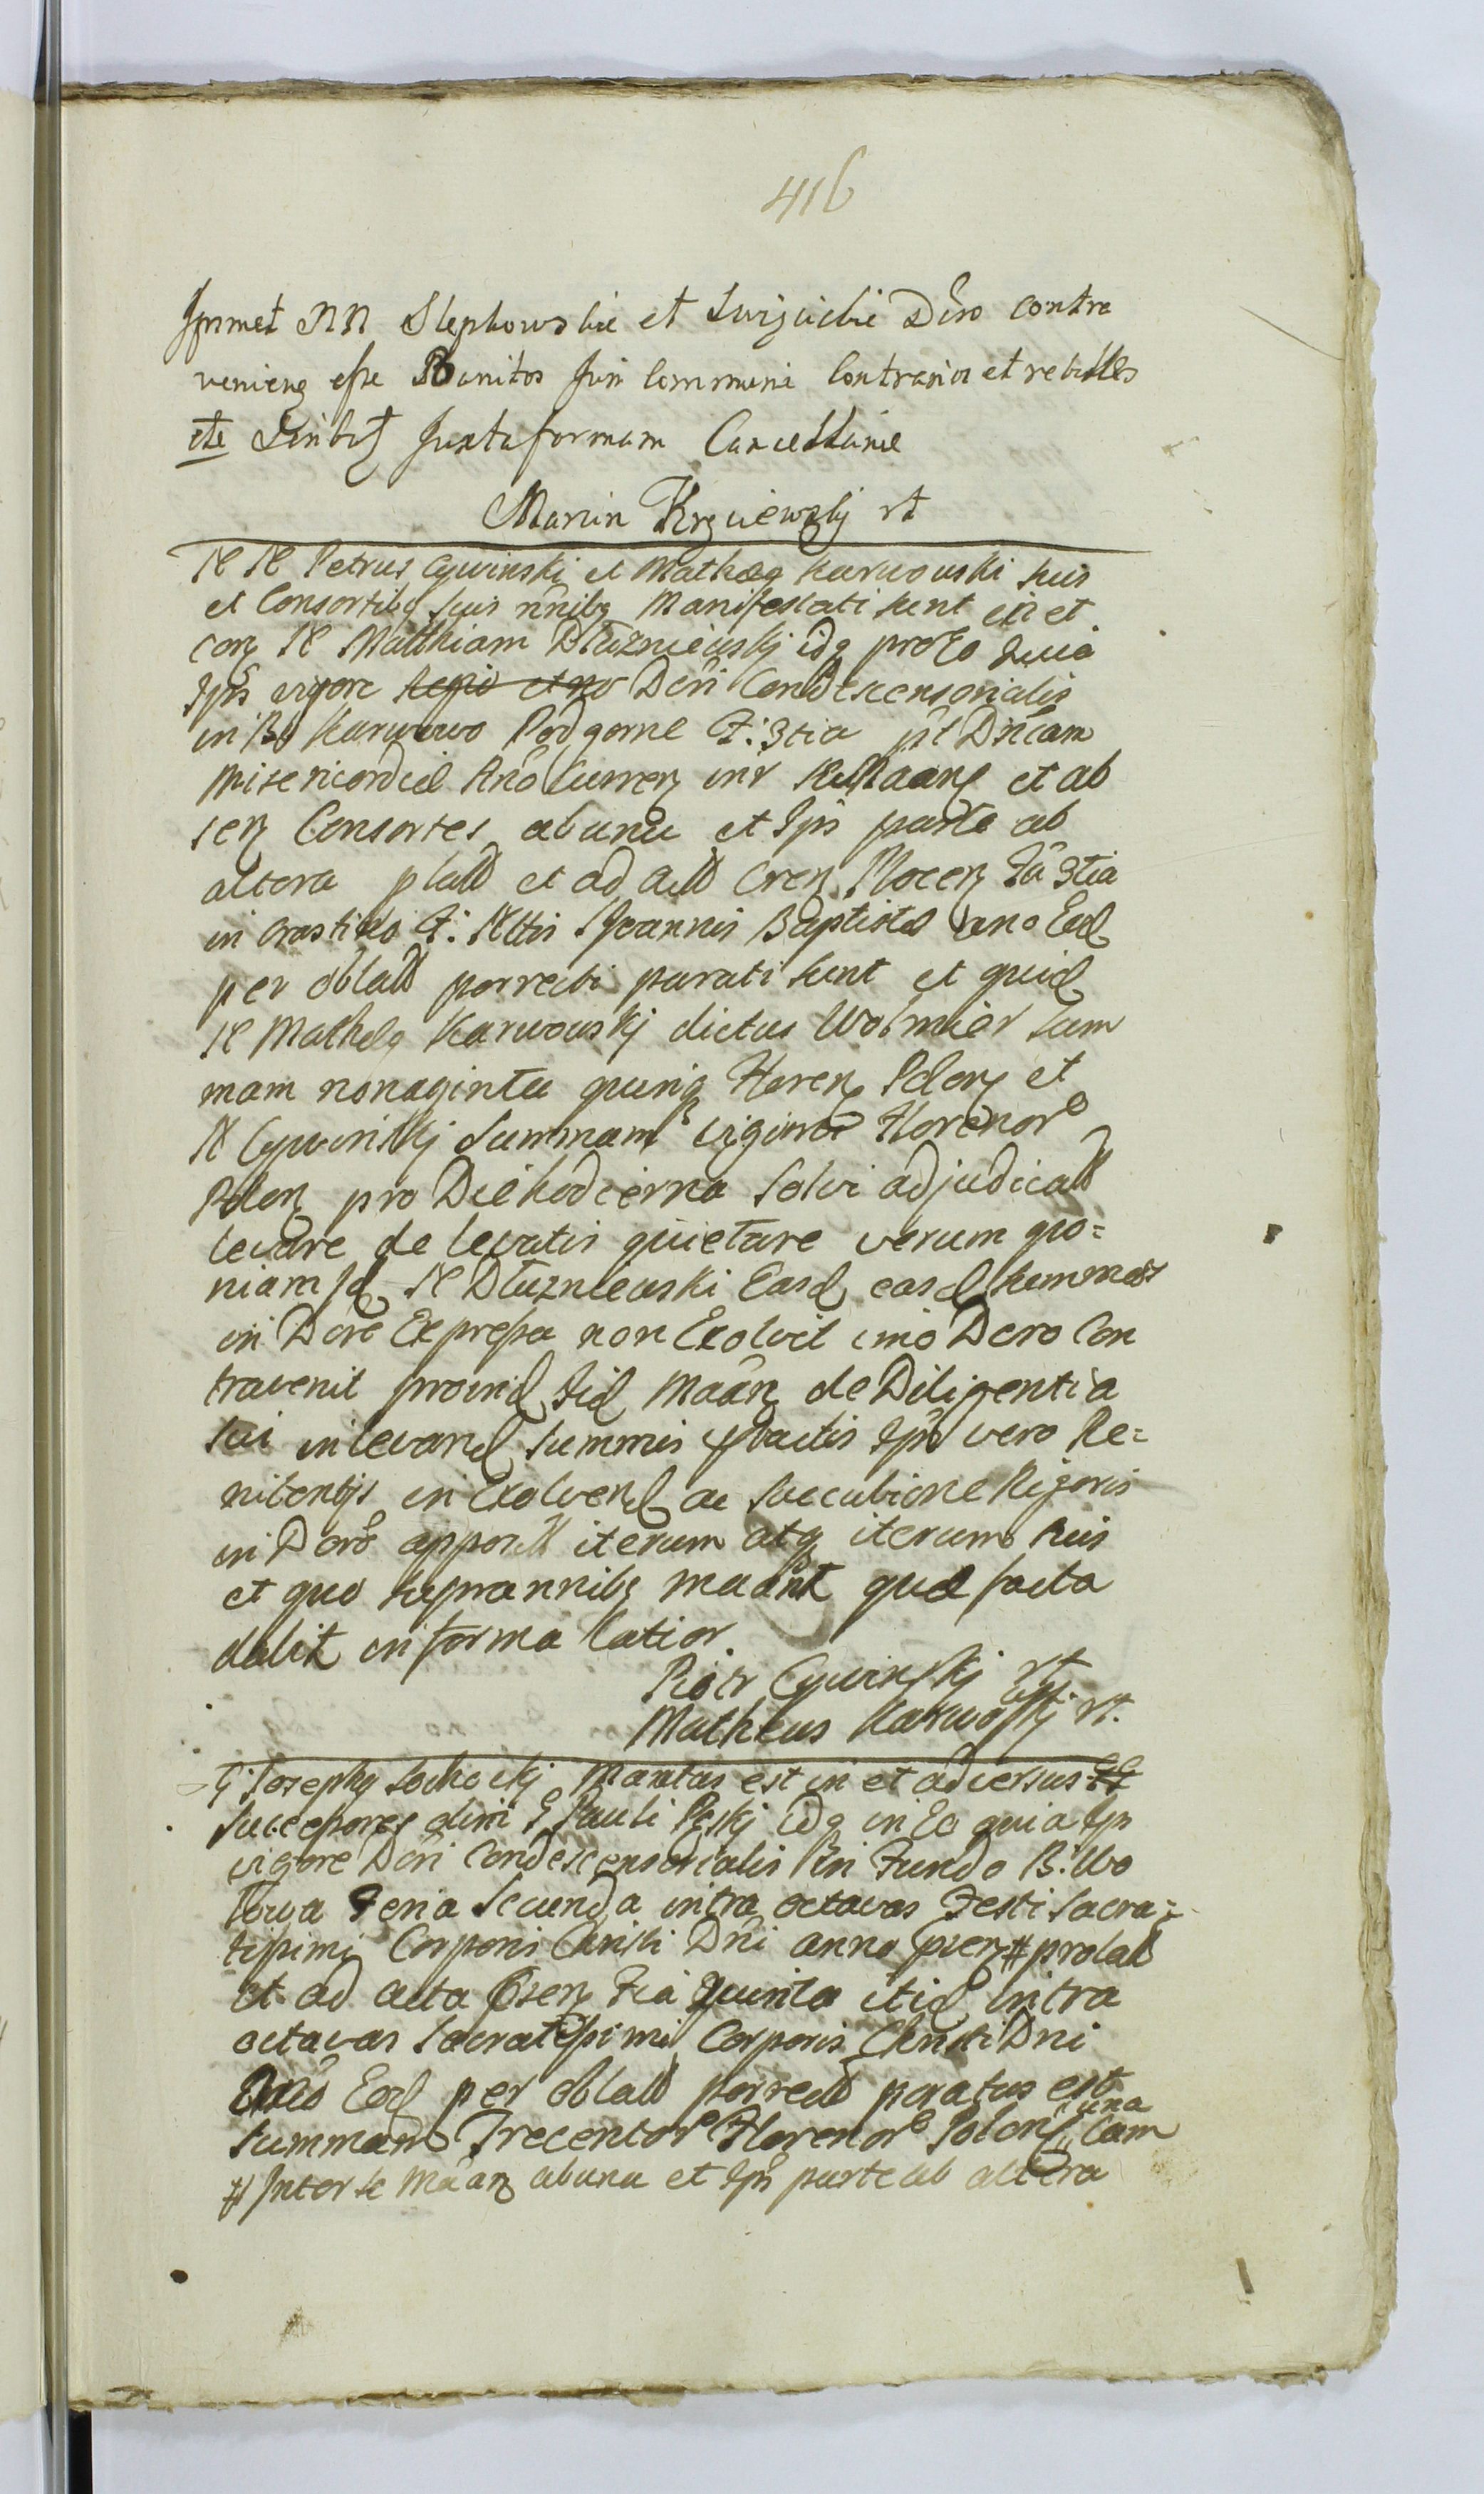 416
Ipsmet NN Slepkowskie et Swizickie Dero contra
veniens esse Banitos Juri Communi Contrarios et rebelles
etc Juxta formam Cancellariae
Marcin rt
N N Petrus Cywinski et Matheq Karwowski suis
et Consortibq suis nnibq Manifestati sunt in et
con N Matthiam Dłuzniewskj idq pro Eo quia
Ipss vigore Decri Condescensorialis
in Bs Karwowo Podgorne F: 3tia pt Dnicam
Misericordiae Ano Curren intr se Maanes et ab
sen Consortes ab una et Ipss parte ab
altera platt et ad actt Cren Plocen Fa 3tia
in Crastino F: Sctis Ioannis Baptistae Ano Eod
per oblatt porrecti parati sunt et quid
N Matheq Karwowskj dictus Wolmier Sum
mam nonaginta quinq Floren Polon et
N Cywinskj Summam viginti Florenor
Polon pro Die hodierna Solvi adjudicatt
levare de levatis quietare verum quo=
niam Id N Dłuzniewski Easd easd summas
in Dere Expressa non Exolvit imo Dero Con
travenit proind Iid Maan de Diligentia
sui in levand summis factis Ipso vero Re=
nitentijs in Exolvend ac succubione Rigoris
in Dero appositt iterum atq iterum suis
et quo supra nnibq maant quae facta
dabit in forma latior.
Piotr Cywinskj rt
Matheus Karwosskj rt.
G: Josephq Lochockj Mantus est in et adversus GG
Successores olim G Pauli Peskj idq in Eo quia Ips
vigore Decri Condescensorialis in Fundo B: Wo
lowa Feria Secunda intra octavas Festi Sacra=
tissimi Corporis Christi Dni anno prsen # prolatt
et ad acta prsen Fia Quinta itid intra
octavas Sacratissimi Corporis Christi Dni
Ano Eod per oblatt porrectt paratus est
Summam Trecentor Florenor Polon una Cam
# Inter se Maan ab una et Ips parte ab altera